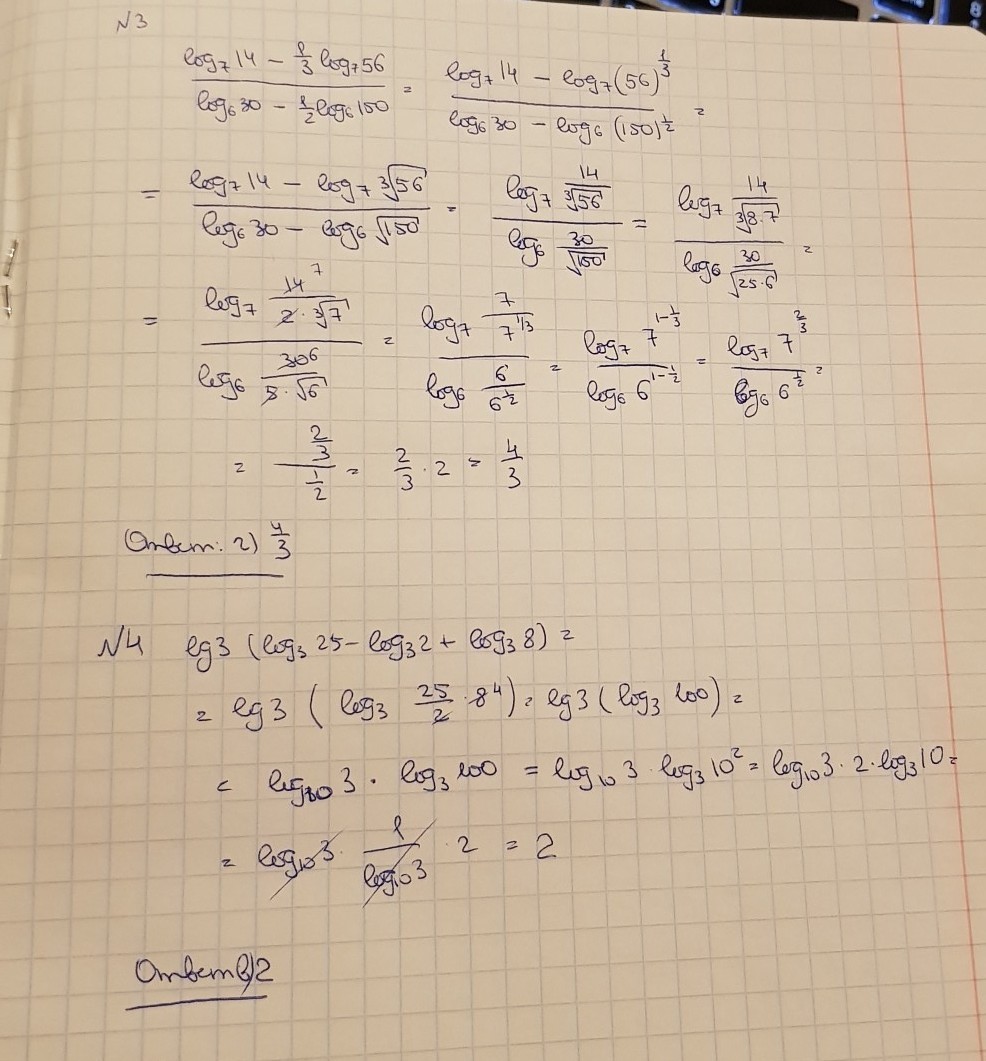 N3
(log₇14 − 1/3 log₇56)/(log₆30 − 1/2 log₆150) = (log₇14 − log₇(56)^(1/3))/(log₆30 − log₆(150)^(1/2)) =
= (log₇14 − log₇∛56)/(log₆30 − log₆√150) = (log₇ 14/∛56)/(log₆ 30/√150) = (log₇ 14/∛(8·7))/(log₆ 30/√(25·6)) =
= (log₇ 14⁷/(2·∛7))/(log₆ 30⁶/(5·√6)) = (log₇ 7/7^(1/3))/(log₆ 6/6^(1/2)) = (log₇ 7^(1−1/3))/(log₆ 6^(1−1/2)) = (log₇ 7^(2/3))/(log₆ 6^(1/2)) =
= (2/3)/(1/2) = 2/3 · 2 = 4/3
Ответ: г) 4/3
N4 lg3 (log₃ 25 − log₃2 + log₃ 8) =
= lg3 (log₃ 25/2 · 8⁴) = lg3 (log₃ 100) =
= log₁₀3 · log₃100 = log₁₀3 · log₃10² = log₁₀3 · 2 · log₃10 =
= log₁₀3 · 1/log₁₀3 · 2 = 2
Ответ в) 2